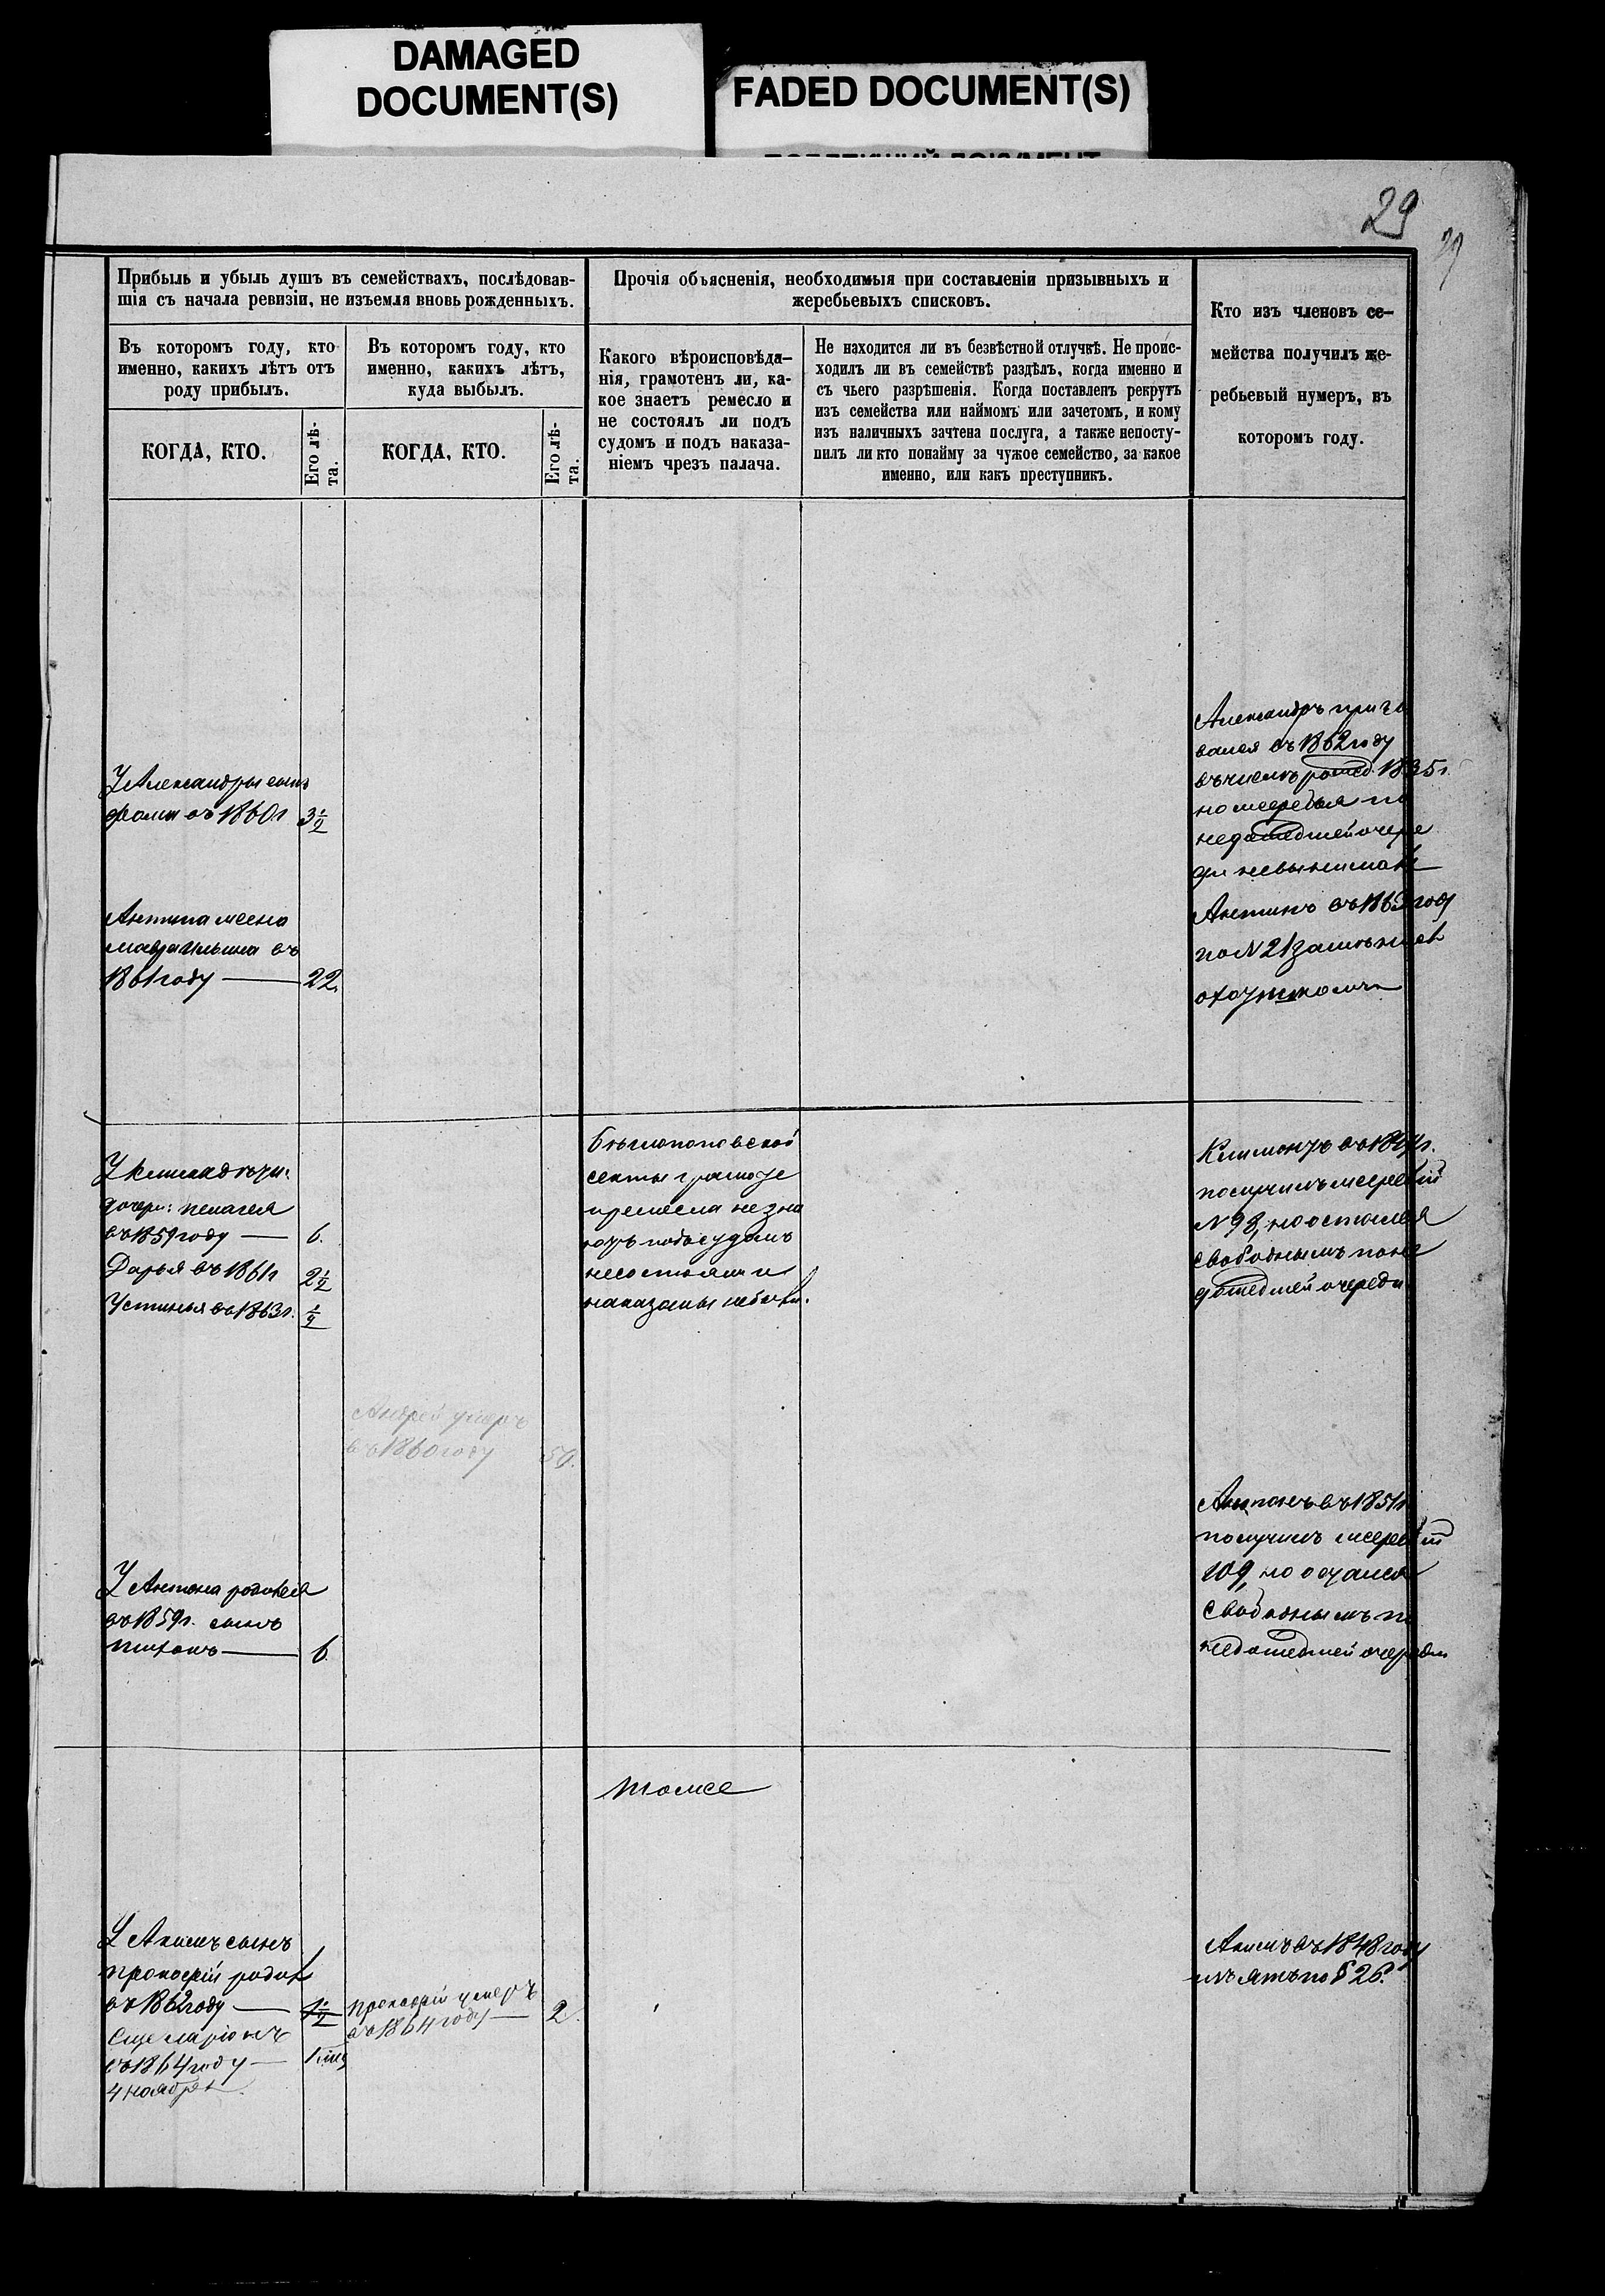 DAMAGED
DOCUMENT(S)
FADED DOCUMENT(S)
29
29
Прибыль и убыль душъ въ семействахъ, послѣдовав-
шія съ начала ревизіи, не изъемля вновь рожденныхъ.
Въ которомъ году, кто
именно, какихъ лѣтъ отъ
роду прибылъ.
Въ которомъ году, кто
именно, какихъ лѣтъ,
куда выбылъ.
КОГДА, КТО.
Его лѣ-
та.
КОГДА, КТО.
Его лѣ-
та.
Прочія объясненія, необходимыя при составленіи призывныхъ и
жеребьевыхъ списковъ.
Какого вѣроисповѣда-
нія, грамотенъ ли, ка-
кое знаетъ ремесло и
не состоялъ ли подъ
судомъ и подъ наказа-
ніемъ чрезъ палача.
Не находится ли въ безвѣстной отлучкѣ. Не проис-
ходилъ ли въ семействѣ раздѣлъ, когда именно и
съ чьего разрѣшенія. Когда поставленъ рекрутъ
изъ семейства или наймомъ или зачетомъ, и кому
изъ наличныхъ зачтена послуга, а также непосту-
пилъ ли кто понайму за чужое семейство, за какое
именно, или какъ преступникъ.
Кто изъ членовъ се-
мейства получилъ же-
ребьевый нумеръ, въ
которомъ году.
У Александры сынъ
въ 1860 г 3½
Антипа жена
Мавра Ильина въ
1861 году — 22.
Александръ
вался въ 1862 году
въ числѣ рожед. 1835 г.
но жеребья по
недошедшей очере
ди невынималъ
Антипъ въ 1863 году
по N 21
охотникомъ
У Климадъ
дочери: Пелагея
въ 1859 году — 6.
Дарья въ 1861 г 2½
Устинья въ 1863 г. ½
Бѣглопоповской
секты грамоте
ремесла не зна
ютъ подъ судомъ
несостояли и
наказаны небыли.
въ 18
получилъ жеребій
N 98, но остался
свободнымъ поне
дошедшей очереди
Андрей умеръ
въ 1860 году
У Антона родился
въ 1859 г. сынъ
Тихонъ — 6.
Антонъ въ 1851 г
получилъ жеребій
109, но остался
свободнымъ по
недошедшей очереди
Тоже
У Акимъ сынъ
Прокофій родил
въ 1862 году — 1½
Прокофій умеръ
въ 1864 году — 2.
Еще Ларіонъ
въ 1864 году —
4 ноября
Акимъ въ 1848 году
изъятъ по § 26.